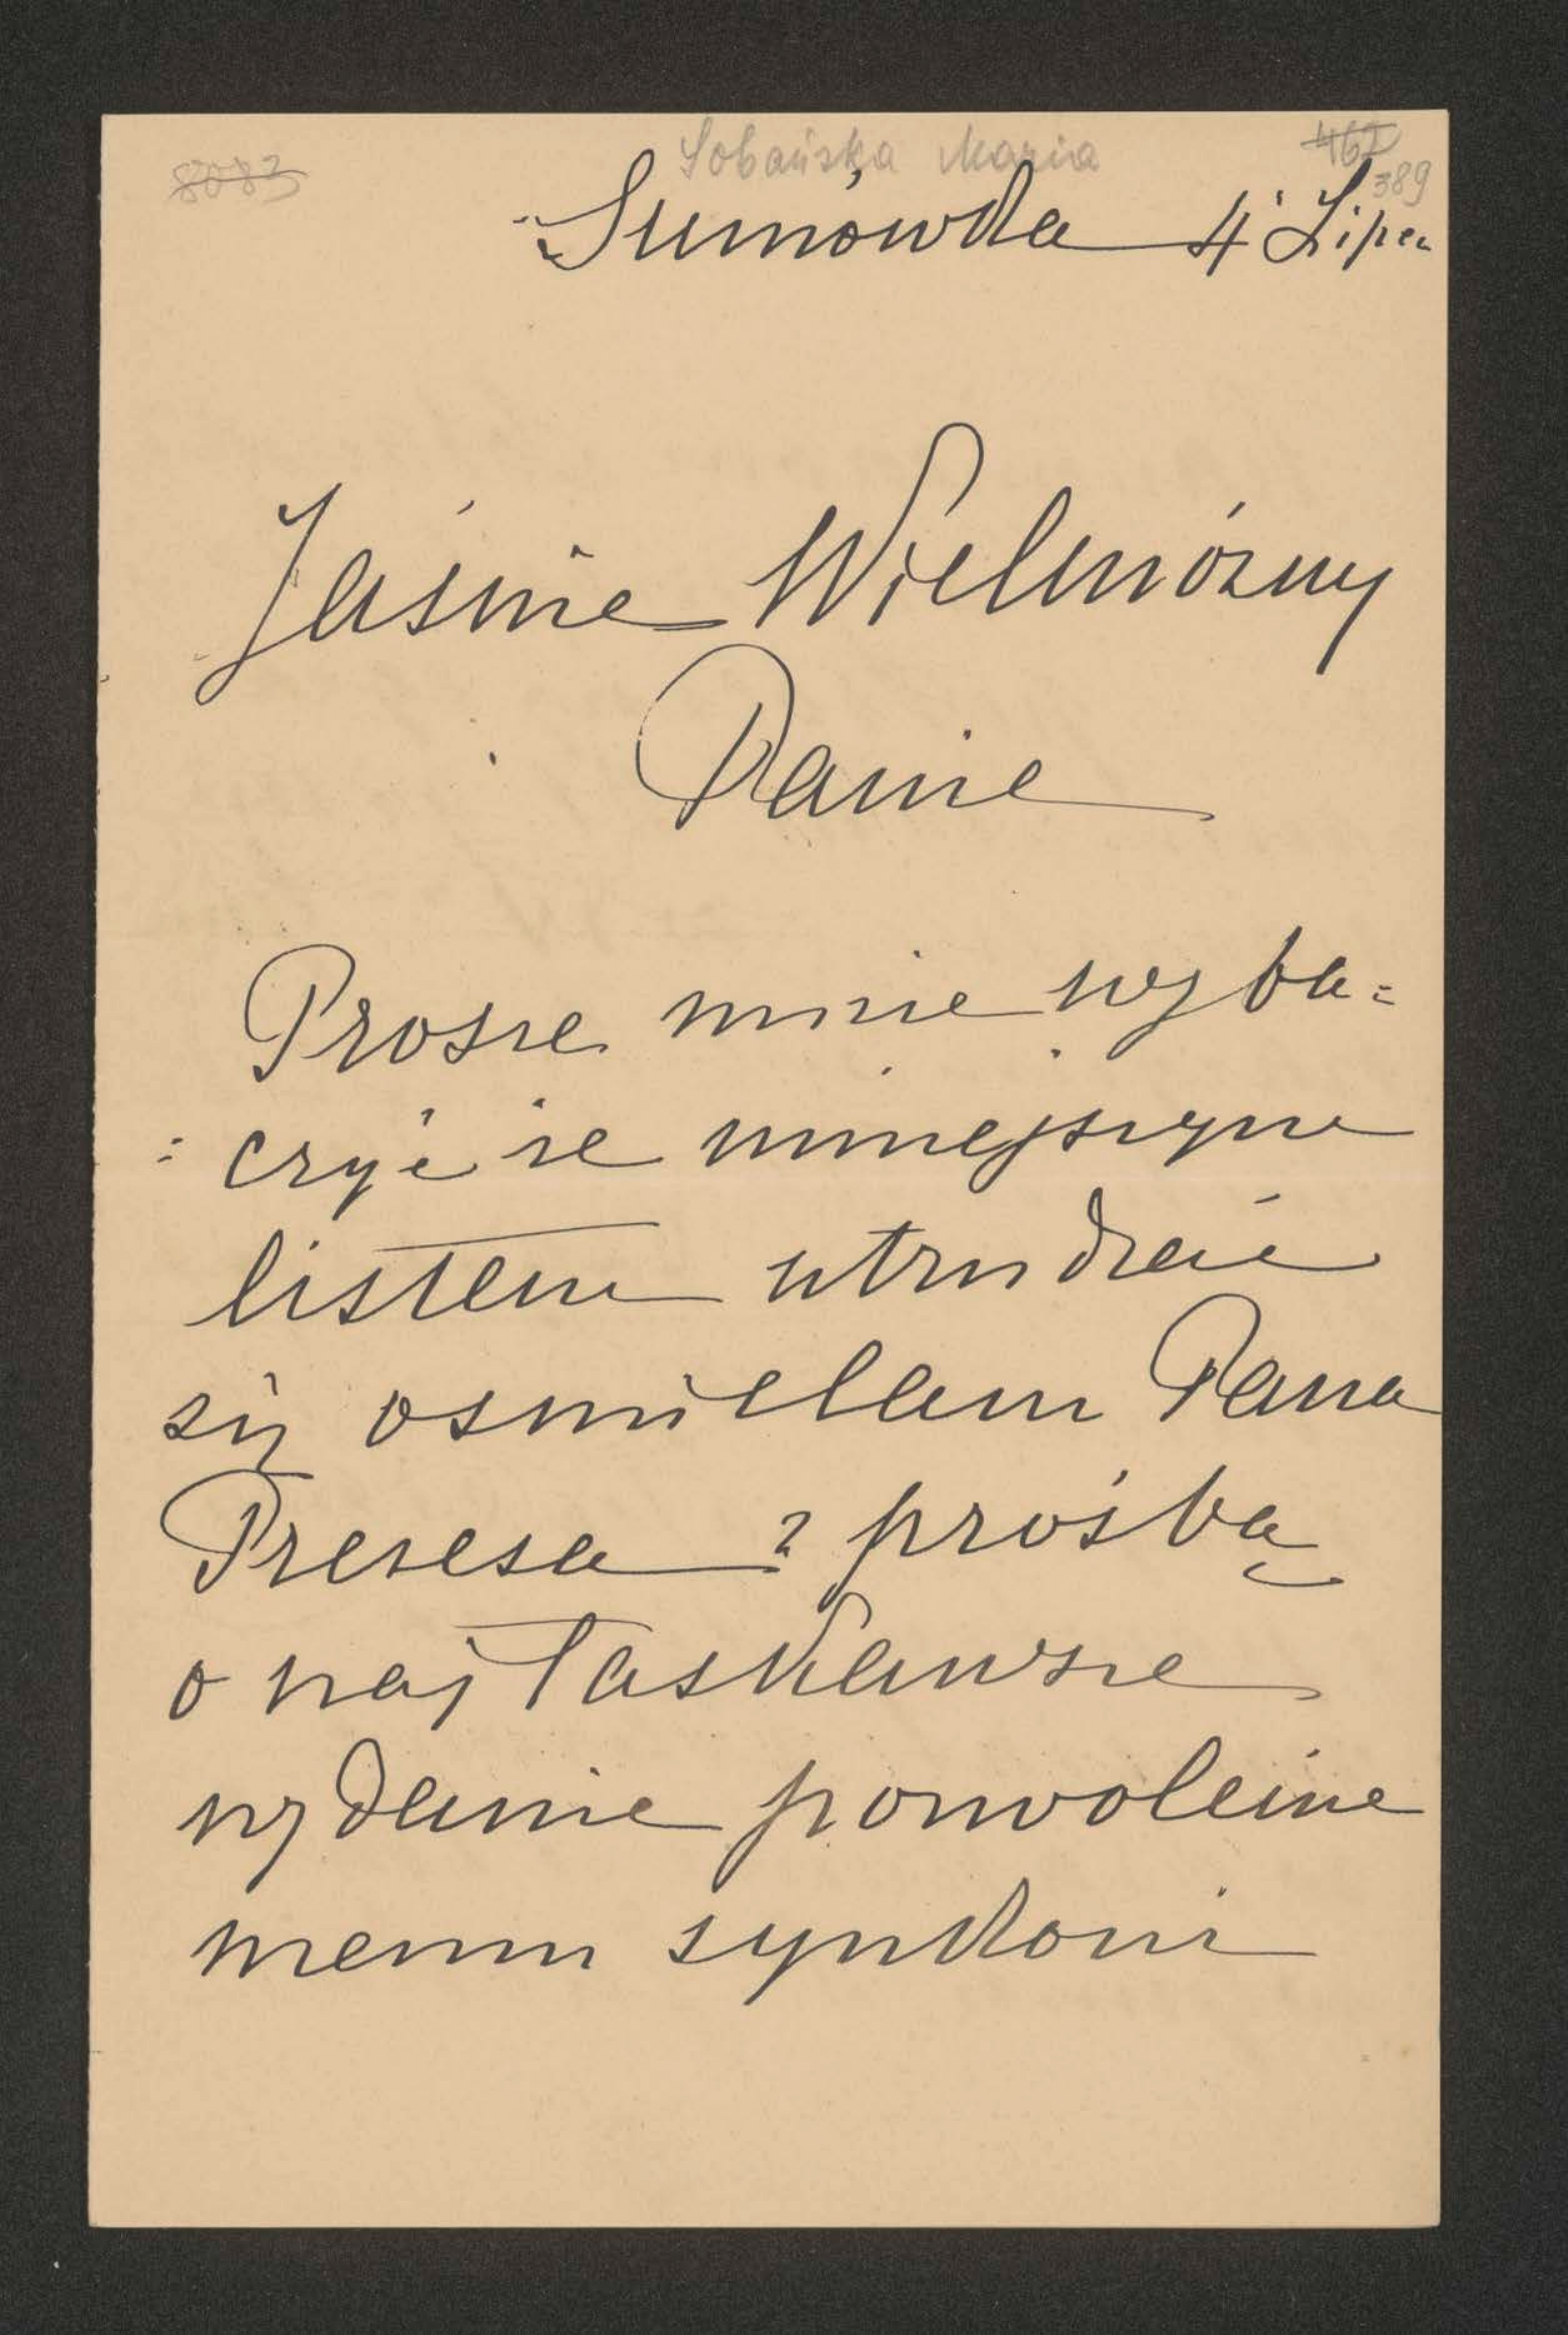 8083
Sobańska Maria
462
389
Sumówka 4 Lipca
Jaśnie Wielmożny
Panie
Proszę mnie wyba=
=czyć że niniejszym
listem utrudzać
się ośmielam Pana
Prezesa z prośbą
o najłaskawsze
wydanie pozwolenie
memu synkowi